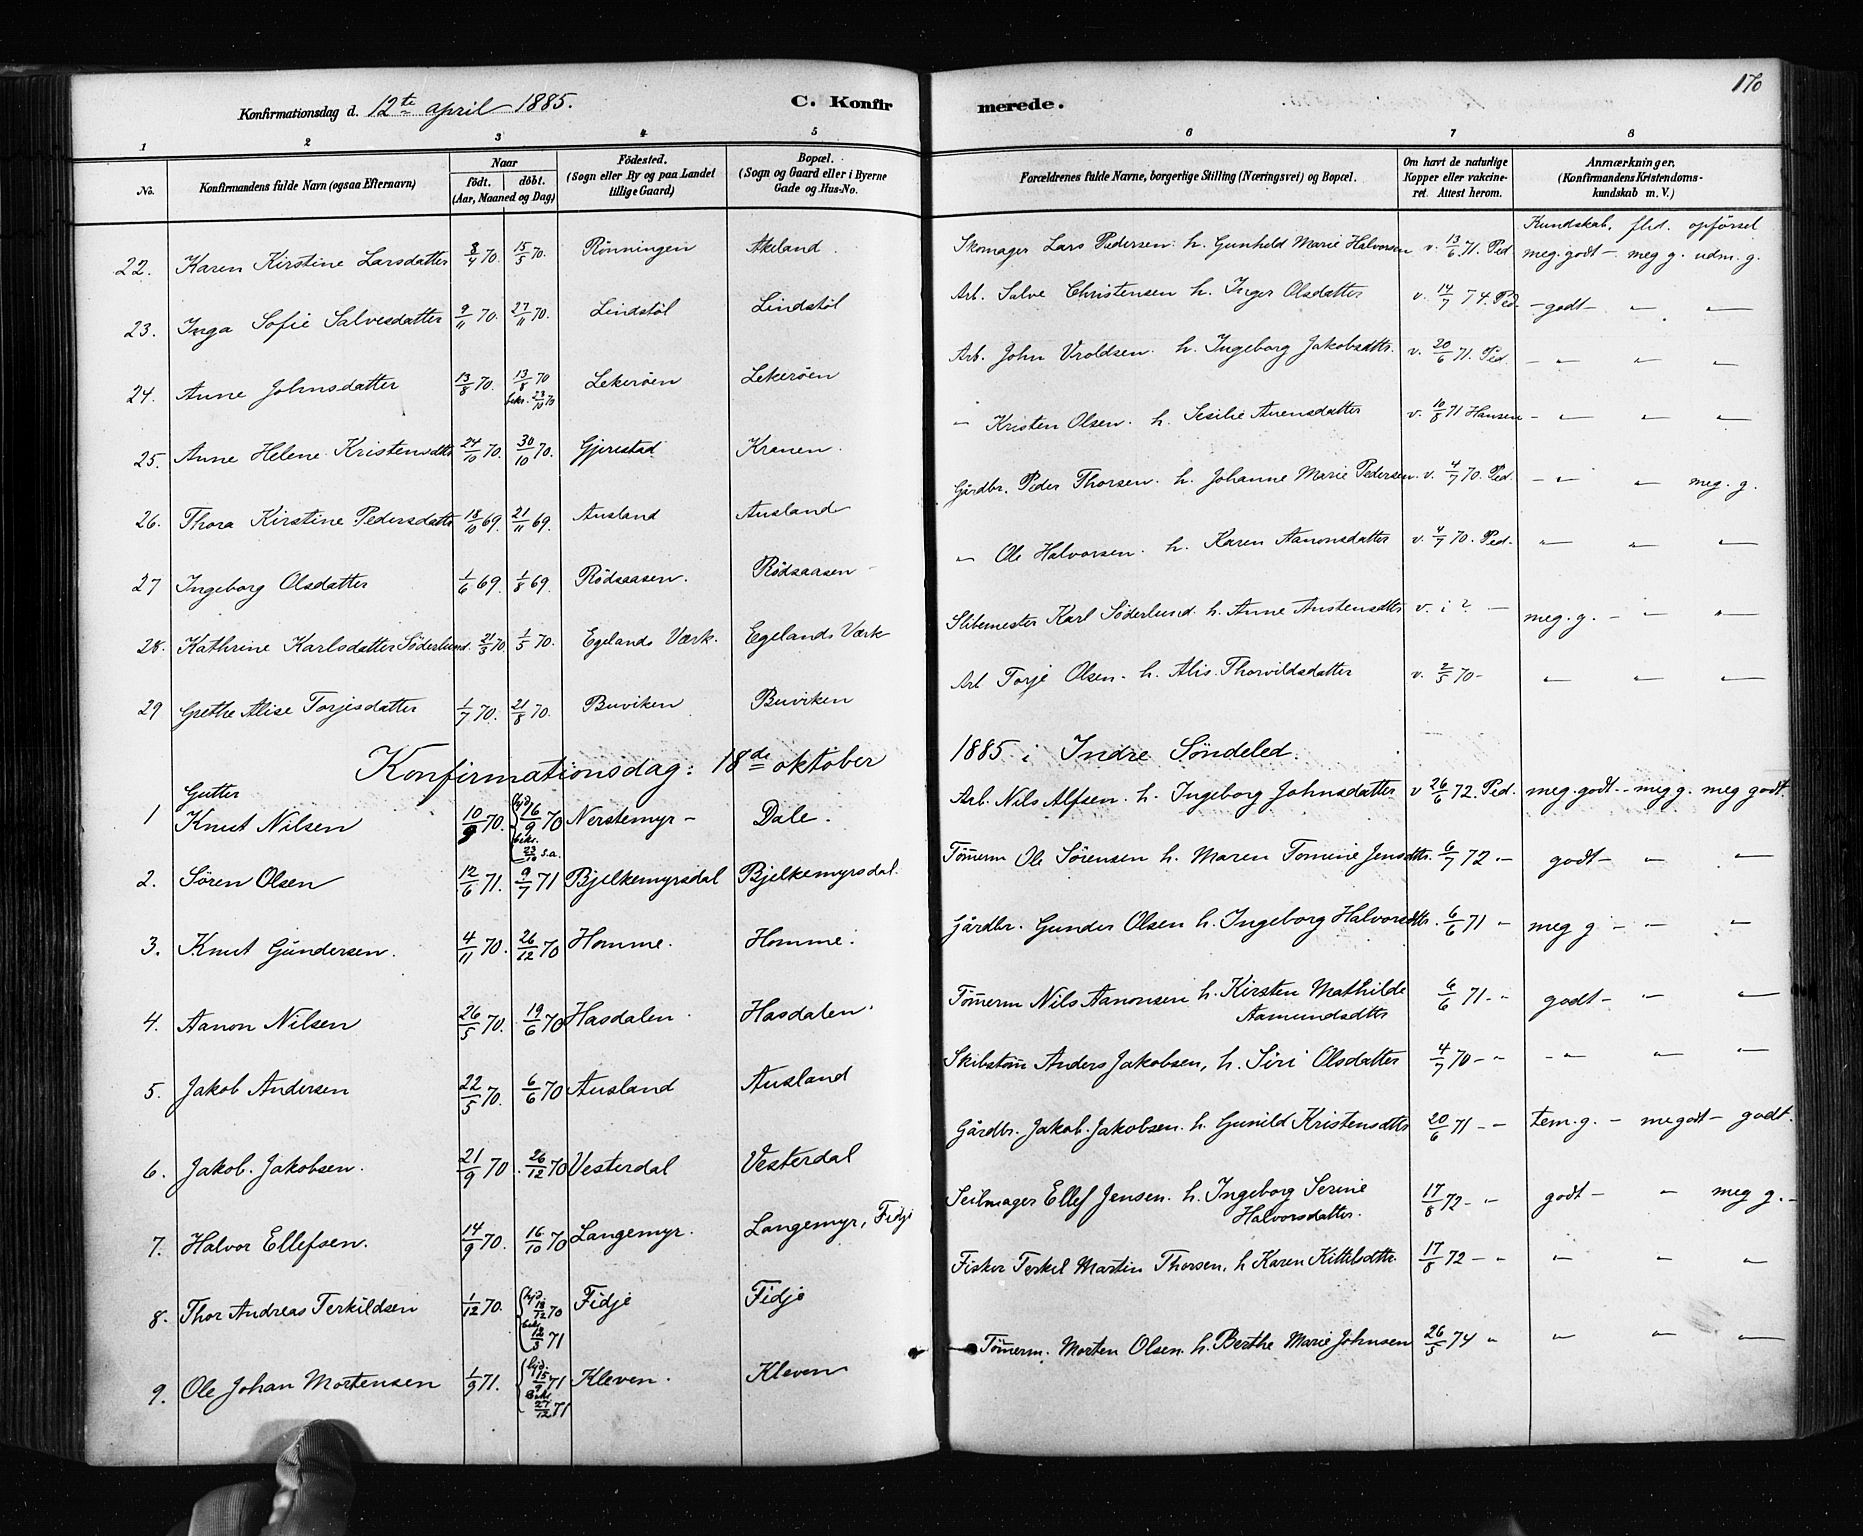 170
Konfirmationsdag d. 12te april 1885. C. Konfirmerede.
1 2 3 4 5 6 7 8
No. Konfirmandens fulde Navn (ogsaa Efternavn) Naar født. døbt. (Aar, Maaned og Dag) Fødested. (Sogn eller By og paa Landet tillige Gaard) Bopæl. (Sogn og Gaard eller i Byerne Gade og Hus-No. Forældrenes fulde Navne, borgerlige Stilling (Næringsvei) og Bopæl. Om havt de naturlige Kopper eller vakcineret. Attest herom. Anmærkninger. (Konfirmandens Kristendomskundskab m. V.)
Kundskab, flid. opførsel
22. Karen Kirstine Larsdatter 8/4 70. 15/5 70. Rønningen Akeland. Skomager Lars Pedersen. h. Gunhild Marie Halvorsen v. 13/6 71. Ped meg. godt – meg g. udm. g.
23. Inga Sofie Salvesdatter 9/11 70. 27/11 70. Lindstøl Lindstøl Arb. Salve Christensen h. Inger Olsdatter v. 14/7 74. Ped. – godt – „ „
24. Anne Johnsdatter 13/8 70. 13/8 70 bekr. 23/10 70 Lekerøen Lekerøen Arb. John Vroldsen. h. Ingeborg Jakobsdttr. v. 20/6 71. Ped. – „ „ „
25. Anne Helene Kristensdttr 24/10 70. 30/10 70. Gjerestad Kranen. „ Kristen Olsen. h. Sesilie Anensdatter v. 10/8 71 Hansen – „ „ „
26. Thora Kirstine Pedersdattr 18/10 69. 21/11 69. Ausland Ausland Gårdbr. Peder Thorsen. h. Johanne Marie Pedersen. v. 4/7 70. Ped. – „ „ meg. g.
27 Ingeborg Olsdatter 1/6 69. 1/8 69. Rødsaasen. Rødsaasen – „ Ole Halvorsen. h. Karen Aanonsdatter v. 4/7 70. Ped. „ „ „
28. Kathrine Karlsdatter Søderlund. 21/3 70 1/5 70. Egelands Værk. Egelands Værk Slibemester Karl Søderlund. h. Anne Austensdttr v. i ? – meg. g. – „ „
29 Grethe Alise Torjesdatter 1/7 70. 21/8 70. Buviken Buviken Arb Torje Olsen. h. Alis Thorvildsdatter v. 2/5 70 – „ „ „
Konfirmationsdag: 18de oktober 1885 i Indre Søndeled.
Gutter
1 Knut Nilsen 10/9 70. hjd. 16/9 70 bekr. 23/10 s.a. Nerstemyr – Dale. Arb. Nils Alfsen. h. Ingeborg Johnsdatter v 26/6 72. Ped. meg. godt – meg g. meg godt.
2. Søren Olsen 12/6 71. 9/7 71 Bjelkemyrsdal Bjelkemyrsdal. Tømerm Ole Sørensen h. Maren Tomine Jensdttr. 6/7 72 „ godt – „ „
3. Knut Gundersen. 4/11 70. 26/12 70 Homme. Homme. Gårdbr. Gunder Olsen h. Ingeborg Halvorsdttr. 6/6 71 „ meg g – „ „
4. Aanon Nilsen 26/5 70. 19/6 70 Hasdalen Hasdalen. Tømerm Nils Aanonsen h. Kirsten Mathilde Aamundsdtter 6/6 71 – „ godt – „ „
5. Jakob Andersen 22/5 70. 6/6 70 Ausland Ausland Skibstøm Anders Jakobsen, h. Siri Olsdatter 4/7 70 – „ – „ „ „
6. Jakob Jakobsen. 21/9 70. 26/12 70 Vesterdal Vesterdal Gårdbr. Jakob Jakobsen. h. Gunild Kristensdttr 20/6 71 – „ tem. g. – me godt – godt.
7. Halvor Ellefsen. 14/9 70. 16/10 70 Langemyr. Langemyr, Fidje Seilmager Ellef Jensen. h. Ingeborg Serine Halvorsdatter. 17/8 72 – „ godt – „ meg g. –
8. Thor Andreas Terkildsen 1/12 70. hjd. 18/12 70 bekr. 12/3 71 Fidje Fidje Fisker Terkel Martin Thorsen, h Karen Kittilsdttr. 17/8 72 – „ „ „ „
9. Ole Johan Mortensen 1/9 71. hjd. 15/9 71 Bekr. 27/12 71 Kleven. Kleven Tømerm. Morten Olsen. h. Berthe Marie Johnsen 26/5 74 „ „ „ „